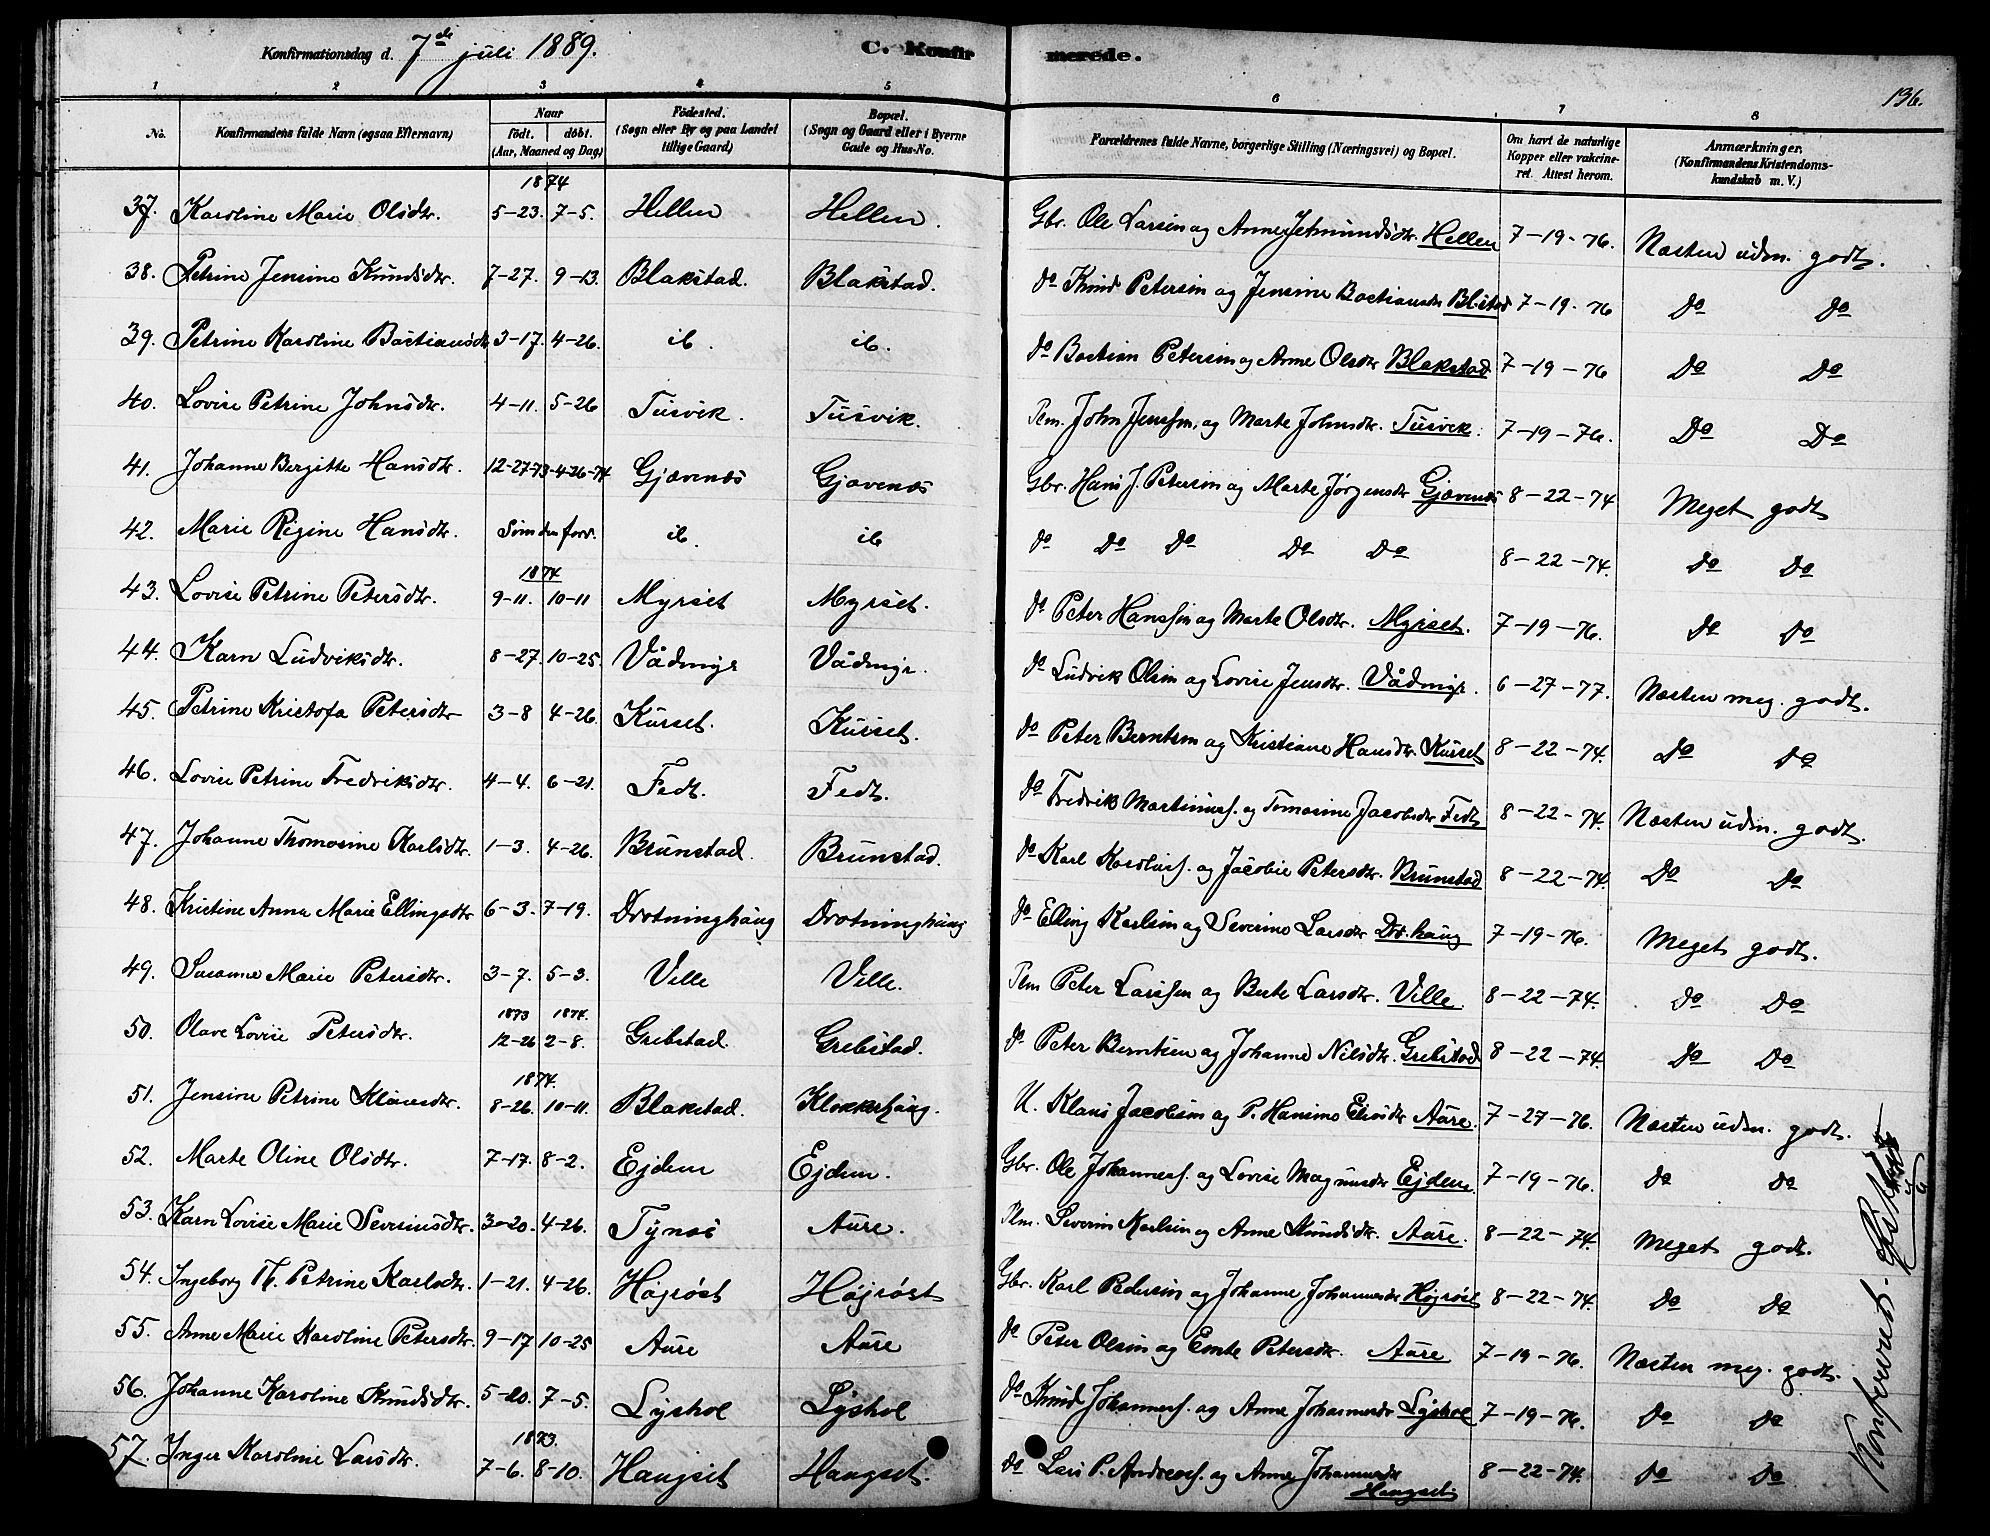 Konfirmationsdag d. 7de juli 1889.
C. Konfirmerede.
136.
1 2 3 4 5 6 7 8
No. Konfirmandens fulde Navn (ogsaa Efternavn) Naar født. døbt. (Aar, Maaned og Dag) Fødested. (Sogn eller By og paa Landet tillige Gaard) Bopæl. (Sogn og Gaard eller i Byerne Gade og Hus-No. Forældrenes fulde Navne, borgerlige Stilling (Næringsvei) og Bopæl. Om havt de naturlige Kopper eller vakcineret. Attest herom. Anmærkninger. (Konfirmandens Kristendomskundskab m. V.)
1874
37. Karoline Marie Olsdtr. 5-23. 7-5. Hellen Hellen. Gbr. Ole Larsen og Anne Jetmundsdtr. Hellen 7-19-76. Næsten udm. godt.
38. Petrine Jensine Knudsdtr. 7-27. 9-13. Blakstad. Blakstad. do Knud Petersen og Jensine Bastiansdtr Bl.stad 7-19-76 Do Do
39. Petrine Karoline Bastiansdtr 3-17. 4-26. ib. ib. do Bastian Petersen og Anne Olsdtr Blakstad 7-19-76 Do Do
40. Lovise Petrine Johnsdtr. 4-11. 5-26 Tusvik. Tusvik. Plm. John Jenssen og Marte Johnsdtr. Tusvik. 7-19-76. Do Do
41. Johanne Bergitte Hansdtr. 12-27-73 4-26-74 Gjævenæs Gjævenæs Gbr. Hans J. Petersen og Marte Jørgensdtr Gjævenæs 8-22-74 Meget godt
42. Marie Regine Hansdtr. Som den forr. ib. ib do Do Do Do Do 8-22-74. Do Do
1874
43. Lovise Petrine Petersdtr. 9-11. 10-11 Myrset Myrset. do Peter Hanssen og Marte Olsdtr. Myrset. 7-19-76. Do Do
44. Karn Ludviksdtr. 8-27. 10-25. Vådmyr Vådmyr. do Ludvik Olsen og Lovise Jensdtr. Vådmyr. 6-27-77. Næsten meg. godt.
45. Petrine Kristofa Petersdtr 3-8 4-26. Kurset. Kurset. do Peter Berntsen og Kristiane Hansdtr. Kurset 8-22-74. Do Do
46. Lovise Petrine Fredriksdtr. 4-4. 6-21. Fedt. Fedt. do Fredrik Martinusf. og Tomasine Jacobsdtr Fedt 8-22-74. Næsten udm. godt.
47. Johanne Thomasine Karlsdtr. 1-3. 4-26. Brunstad. Brunstad. do Karl Karolusf. og Jacobie Petersdtr. Brunstad 8-22-74. Do Do
48. Kristine Anna Marie Ellingsdtr 6-3. 7-19. Drotninghaug Drotninghaug do Elling Karlsen og Severine Larsdtr Dr.haug 7-19-76. Meget godt.
49. Susanne Marie Petersdtr. 3-7. 5-3. Velle Velle. Plm Peter Larssen og Berte Larsdtr. Velle. 8-22-74. Do Do
1873 1874.
50. Olave Lovise Petersdtr. 12-26 2-8. Grebstad. Grebstad. do Peter Berntsen og Johanne Nilsdtr. Grebstad 8-22-74. Do Do
1874.
51. Jensine Petrine Klausdtr. 8-26. 10-11. Blakstad. Klokkerhaug. U. Klaus Jacobsen og P. Hansine Eliasdtr Aure. 7-27-76. Næsten udm. godt.
52. Marte Oline Olsdtr. 7-17. 8-2. Ejdem Ejdem. Gbr. Ole Johannesf. og Lovise Magnusdtr Ejdem. 7-19-76. Do Do
53. Karn Lovise Marie Severinsdtr. 3-20. 4-26. Tynæs Aure. Plm. Severin Karlsen og Anne Knudsdtr. Aure. 8-22-74. Meget godt.
54. Ingeborg Th. Petrine Karlsdtr. 1-21. 4-26. Højrøst Højrøst Gbr. Karl Pedersen og Johanne Johannesdtr Højrøst 8-22-74. Do Do
55. Anne Marie Karoline Petersdtr. 9-17 10-25 Aure Aure do Peter Olsen og Emte Petersdtr. Aure 7-19-76. Næsten meg. godt.
56. Johanne Karoline Knudsdtr. 5-20. 7-5. Lyshol Lyshol do Knud Johannesf. og Anne Johannesdtr Lyshol 7-19-76. Do Do
1873.
57. Inger Karoline Larsdtr. 7-6. 8-10. Haugset Haugset. do Lars P. Andreasf. og Anne Johannesdtr Haugset. 8-22-74. Do Do
Konfereret.